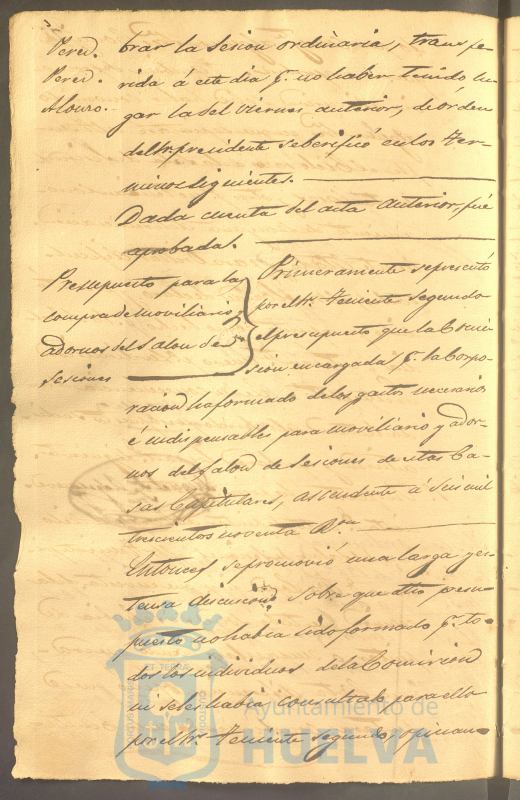 Pered.
Pered.
Alonso.
brar la sesion ordinaria, transfe-
rida á este dia p.r no haber tenido lu-
gar la del viernes anterior, de orden
del Sr. presidente se berificó en los ter-
minos siguientes.
Dada cuenta del acta anterior, fué
aprobada.
Presupuesto para la
compra de moviliario y
adornos del Salon de
Sesiones
Primeramente se presentó
por el Sr. Teniente segundo
el presupuesto que la Comi-
sion encargada p.r la Corpo-
racion ha formado de los gastos necesarios
é indispensables para moviliario y ador-
nos del Salon de Sesiones de estas Ca-
sas Capitulares, ascendente á seis mil
trescientos noventa R.s vn
Entonces se promovió una larga y es-
tensa discusion sobre que dho presu-
puesto no habia sido formado p.r to-
dos los individuos de la Comision
ni se les habia consultado para ello
por el Sr. Teniente segundo, opinan-
Ayuntamiento de
HUELVA